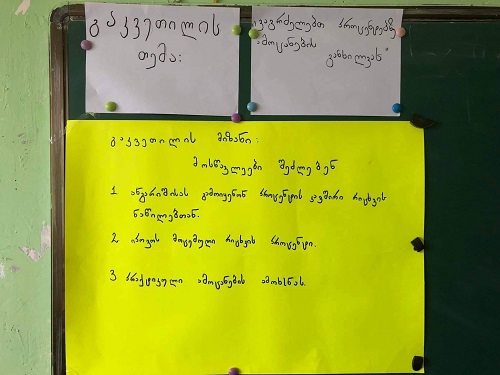 გაკვეთილის
თემა:
ვაგრძელებთ პროცენტებზე
ამოცანების
განხილვას"
გაკვეთილის მიზანი:
მოსწავლეები შეძლებენ
1 ანგარიშისას გამოიყენონ პროცენტის კავშირი რიცხვის
ნაწილებთან.
2 იპოვოს მოცემული რიცხვის პროცენტი.
3 პრაქტიკული ამოცანების ამოხსნას.